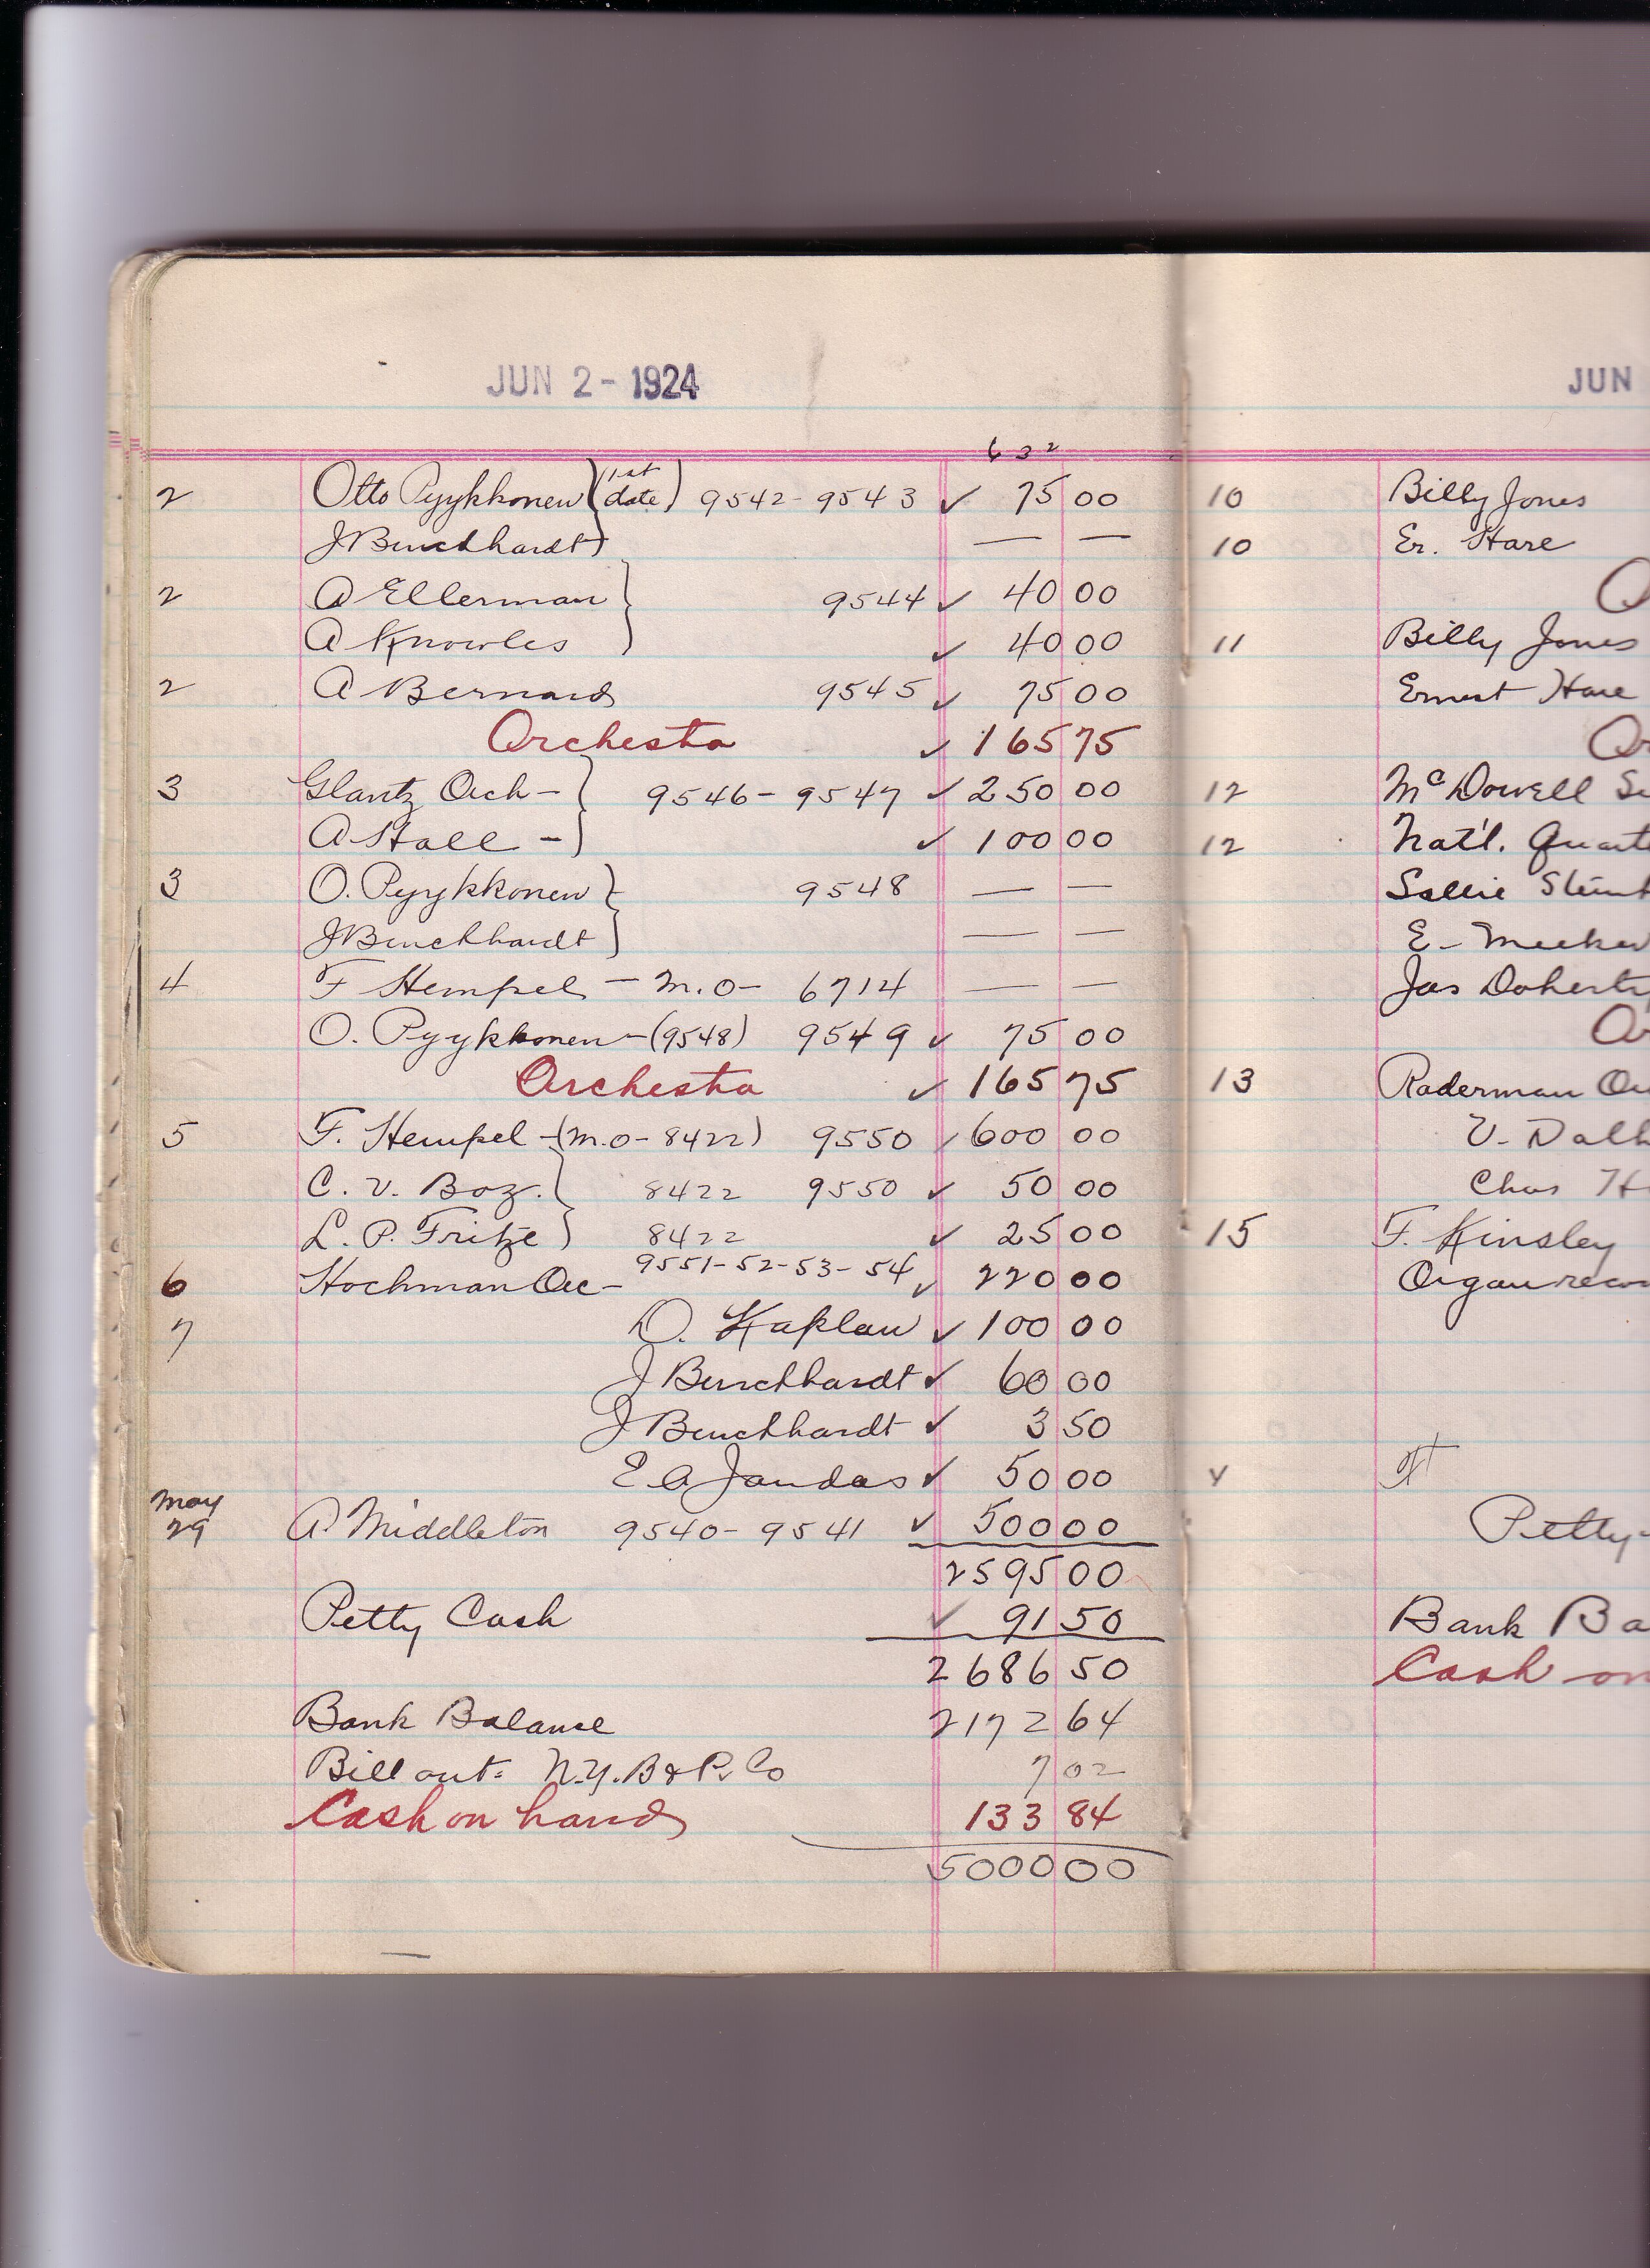 JUN 2 - 1924
632
2 Otto Pyykkonen (1st date) 9542 - 9543 ✓ 75 00
J Burckhardt — —
2 A Ellerman 9544 ✓ 40 00
A Knowles ✓ 40 00
2 A Bernard 9545 ✓ 75 00
Orchestra ✓ 165 75
3 Glantz Orch - 9546 - 9547 ✓ 250 00
A Hall - ✓ 100 00
3 O. Pyykkonen 9548 — —
J Burckhardt — —
4 F Hempel - M.O - 6714 — —
O. Pyykkonen - (9548) 9549 ✓ 75 00
Orchestra ✓ 165 75
5 F. Hempel - (M.O - 8422) 9550 ✓ 600 00
C. V. Boz. 8422 9550 ✓ 50 00
L. P. Fritze 8422 ✓ 25 00
6 Hochman Orc - 9551 - 52 - 53 - 54 ✓ 220 00
7 D. Kaplan ✓ 100 00
J Burckhardt ✓ 60 00
J Burckhardt ✓ 3 50
E A Jandas ✓ 50 00
May 29 A. Middleton 9540 - 9541 ✓ 500 00
2595 00
Petty Cash ✓ 91 50
2686 50
Bank Balance 2172 64
Bill out: N.Y. B & P. Co 7 02
Cash on hand 133 84
5000 00
JUN
10 Billy Jones
10 Er. Hare
O
11 Billy Jones
Ernest Hare
Or
12 McDowell S
12 Nat'l. Quart
Sallie Stem
E - Meeker
Jas Dohert
Or
13 Raderman Or
V - Dalh
Chas H
15 F. Kinsley
Organ reco
Petty -
Bank Ba
Cash on